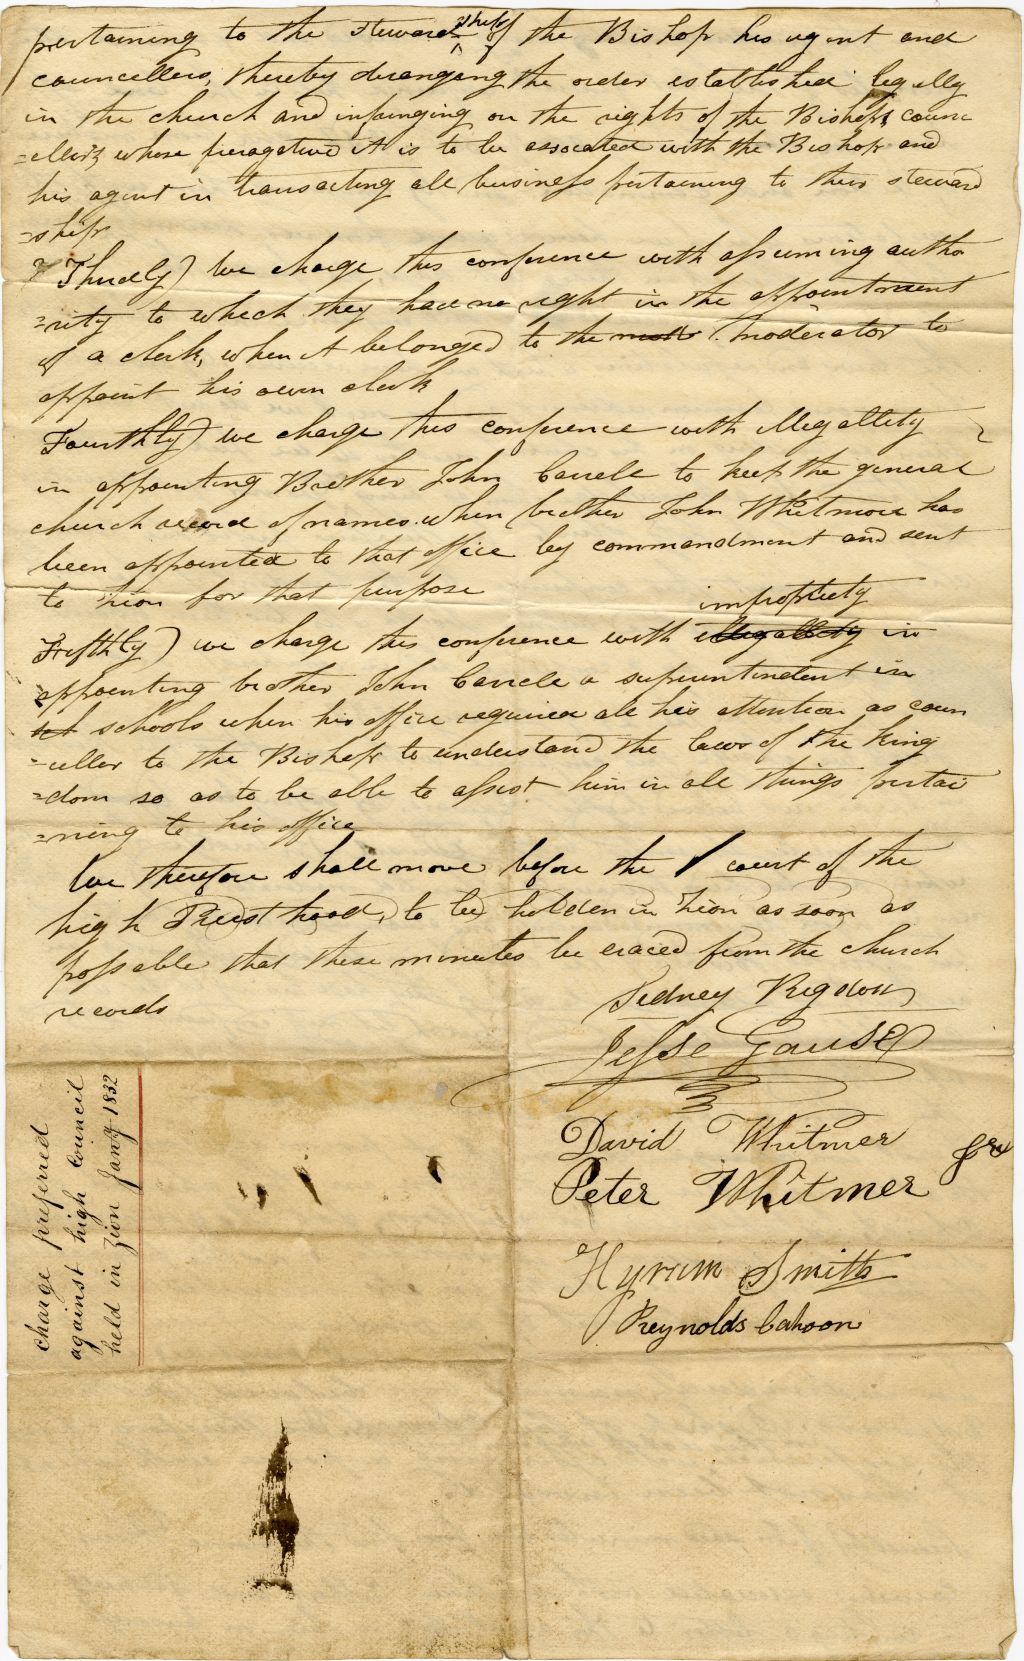 pertaining to the steward ship of the Bishop his agent and
councellers, thereby deranging the order established legally
in the church and infringing on the rights of the Bishops counc
=ellers whose preragative it is to be assocated with the Bishop and
his agent in transacting all business pertaining to their steward
=ship
Thirdly) we charge this conference with assuming autho
=rity to which they had no right in the appointment
of a clerk, when it belonged to the moderator to
appoint his own clerk
Fourthly) we charge this conference with illegallity
in appointing Brother John Correll to keep the general
church record of names when brother John Whitmore has
been appointed to that office by commandment and sent
to Zion for that purpose
impropriety
Fifthly) we charge this conference with illegallity in
appointing brother John Correll a superintendent in
schools when his office required all his attention as coun
=celler to the Bishop to understand the laws of the king
=dom so as to be able to assist him in all things pertai
=ning to his office
We therefore shall move before the court of the
high Priest hood, to be holden in Zion as soon as
possable that these minutes be eraced from the church
records
Sidney Rigdon
Jesse Gause
David Whitmer
Peter Whitmer Jr
Hyrum Smith
Reynolds Cahoon
charge preferred
against high council
held in Zion Jany 1832